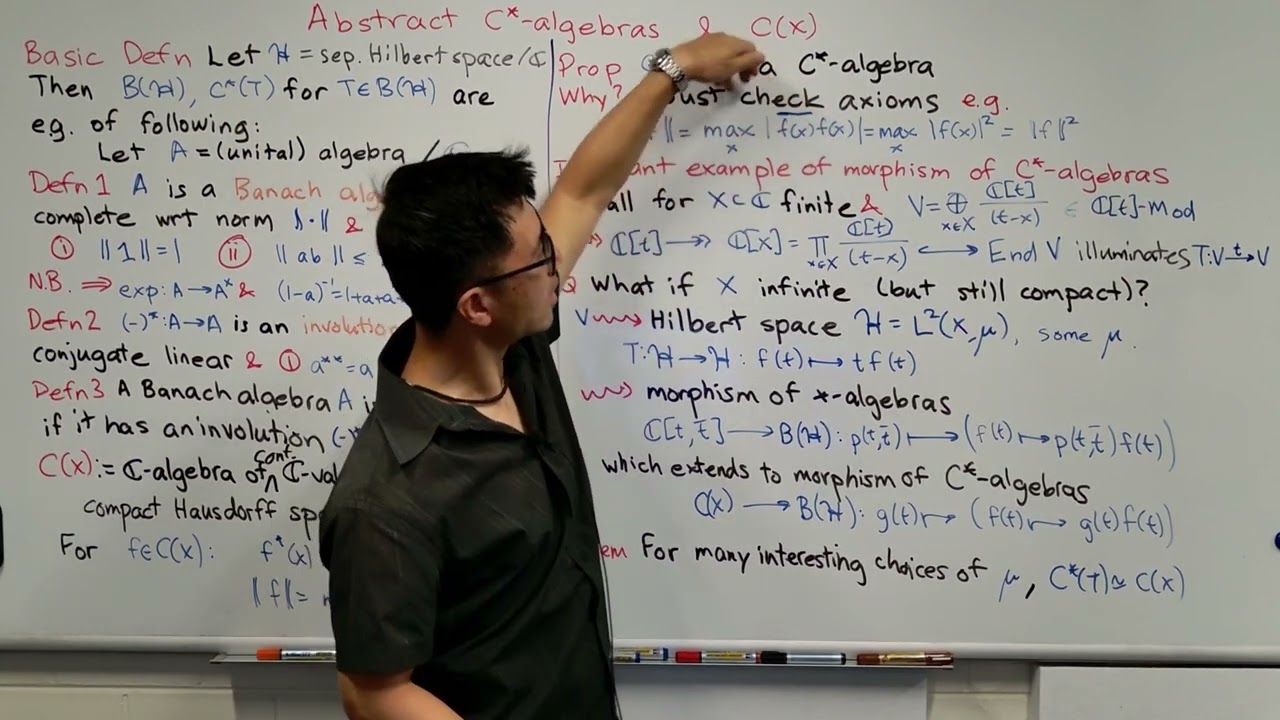 Abstract C*-algebras & C(X)
Basic Defn Let ℋ = sep. Hilbert space/ℂ
Then B(ℋ), C*(T) for T∈B(ℋ) are
e.g. of following:
Let A = (unital) algebra /
Defn 1 A is a Banach alg
complete wrt norm ‖·‖ &
(i) ‖1‖=1 (ii) ‖ab‖ ≤
N.B. ⇒ exp: A→A* & (1-a)⁻¹=1+a+a
Defn2 (-)*:A→A is an involutio
conjugate linear & ① a**=a
Defn3 A Banach algebra A i
if it has an involution (-)*
C(X):= ℂ-algebra of cont. ℂ-val
compact Hausdorff sp
For f∈C(X): f*(x)
‖f‖=
Prop a C*-algebra
Why? ust check axioms e.g.
‖ = max_x |f̅(x)f(x)| = max_x |f(x)|² = ‖f‖²
ant example of morphism of C*-algebras
all for X⊂ℂ finite & V = ⊕_{x∈X} ℂ[t]/(t-x) ∈ ℂ[t]-Mod
ℂ[t] ↠ ℂ[X] = ∏_{x∈X} ℂ[t]/(t-x) ↪ End V illuminates T:V →^t V
Q What if X infinite (but still compact)?
V ⇝ Hilbert space ℋ = L²(X,μ), some μ.
T:ℋ→ℋ: f(t)↦tf(t)
⇝ morphism of *-algebras
ℂ[t,t̄] → B(ℋ): p(t,t̄) ↦ (f(t)↦p(t,t̄)f(t))
which extends to morphism of C*-algebras
C(X) → B(ℋ): g(t)↦(f(t)↦g(t)f(t))
em For many interesting choices of μ, C*(T)≃C(X)